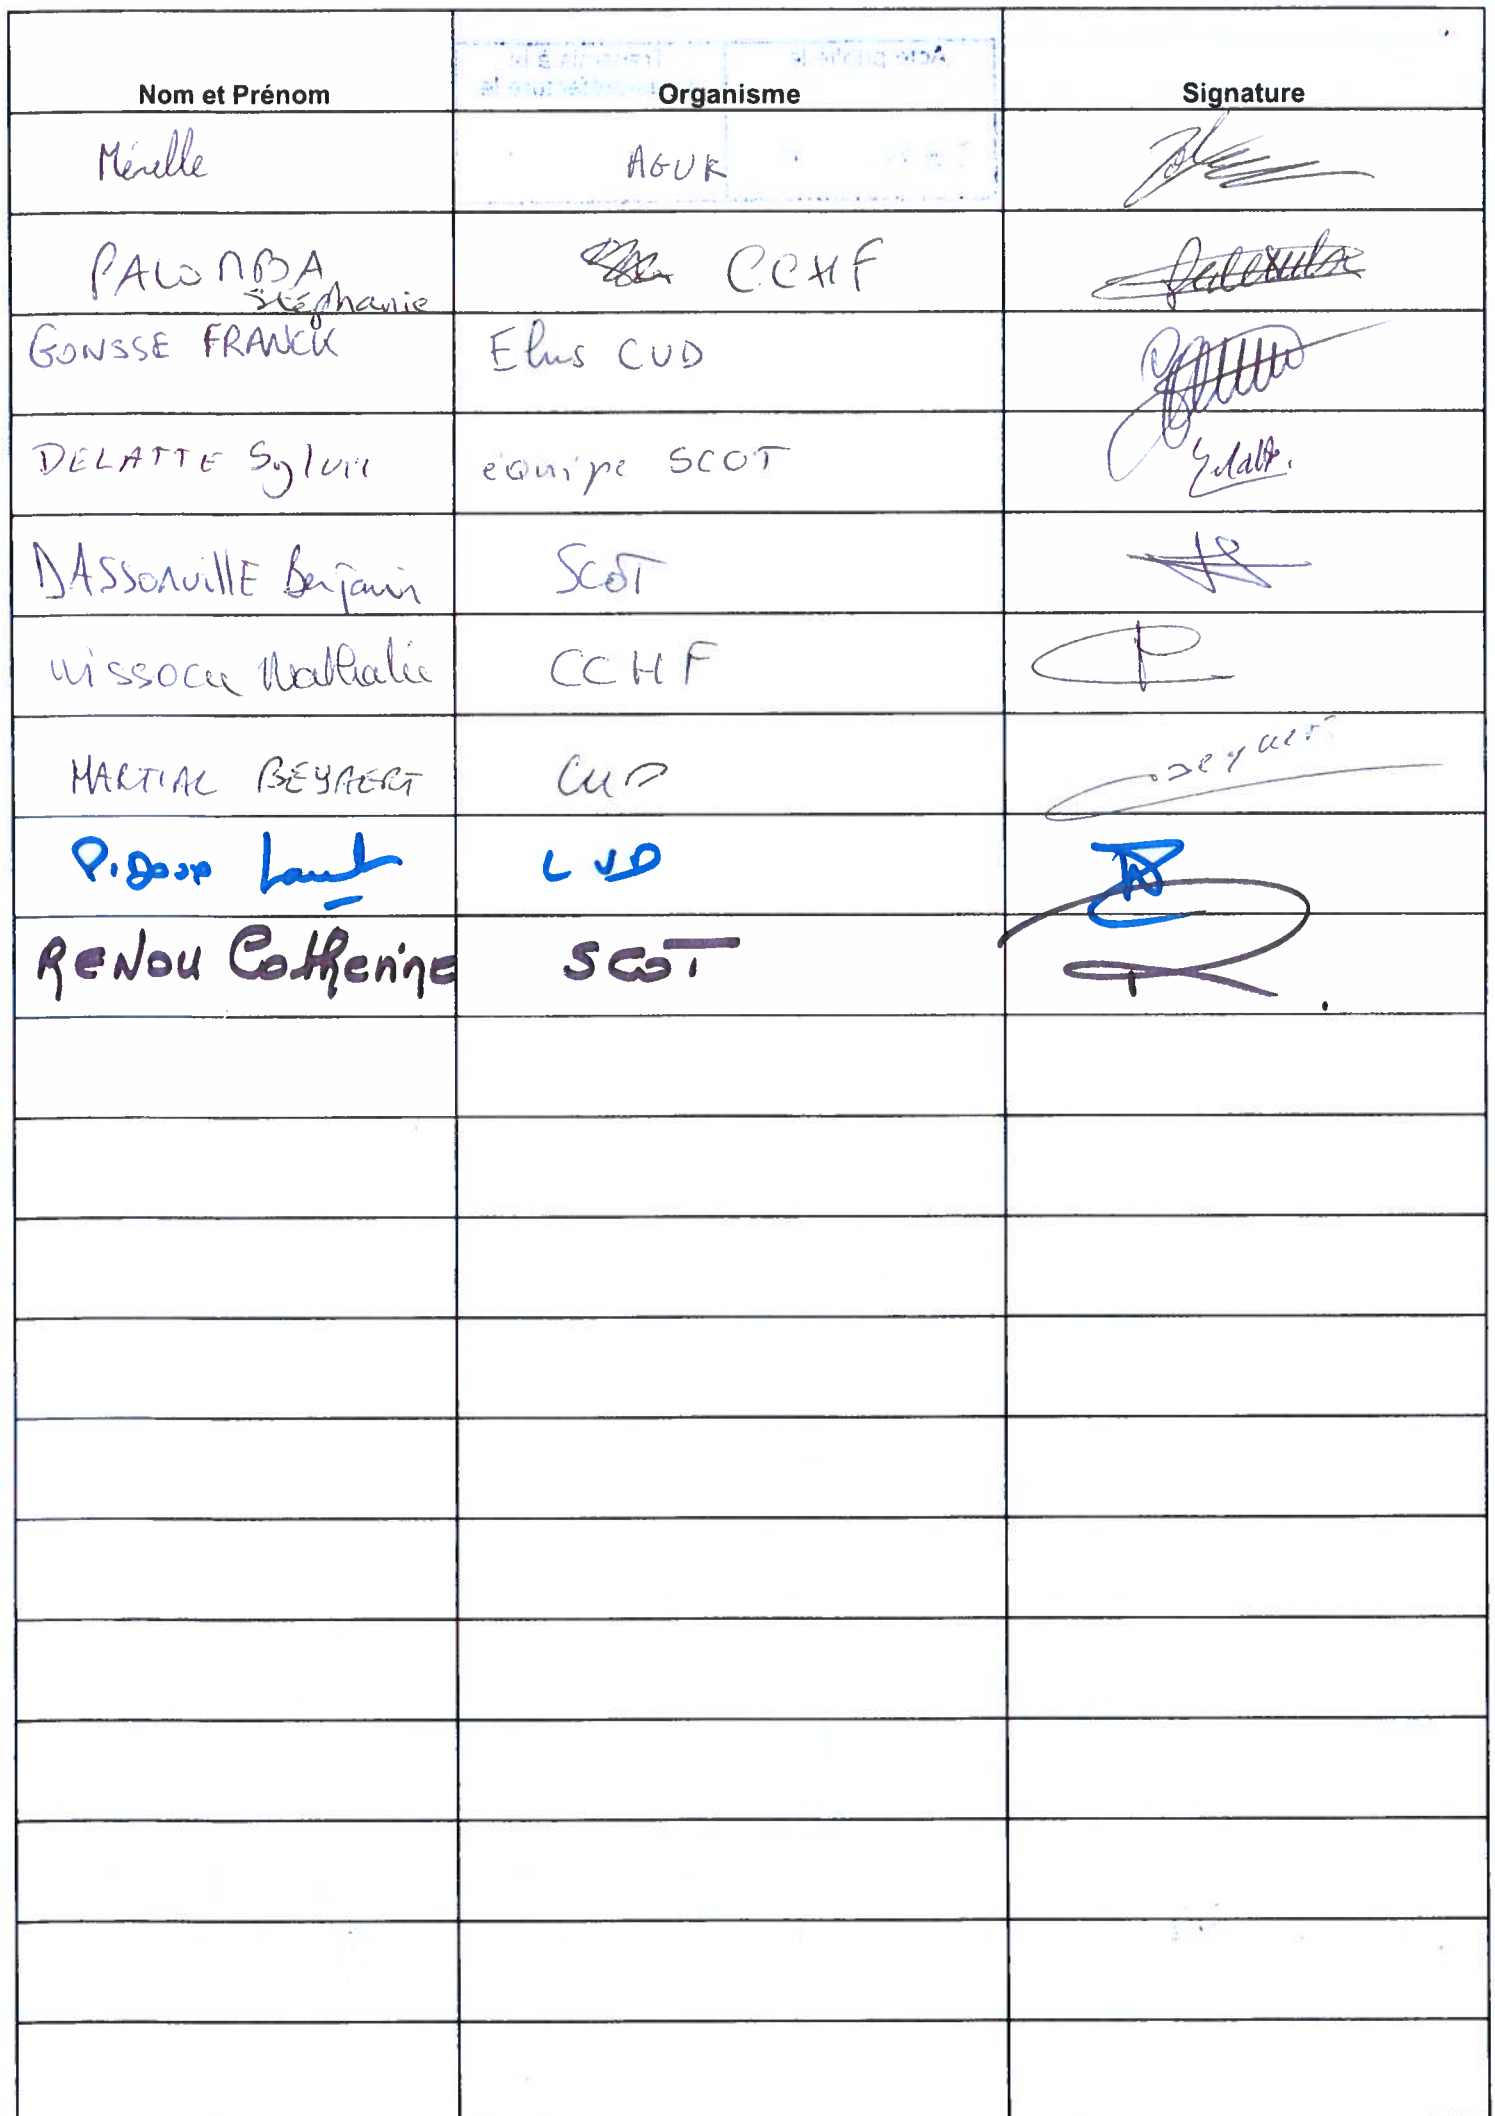 Nom et Prénom Organisme Signature
Mérelle AGUR
PALOMBA Stéphanie CCHF
GONSSE FRANCK Elus CUD
DELATTE Sylvie équipe SCOT
DASSONVILLE Benjamin SCOT
Nathalie CCHF
MARTIAL BEYAERT CUD
CUD
RENOU Catherine SCOT